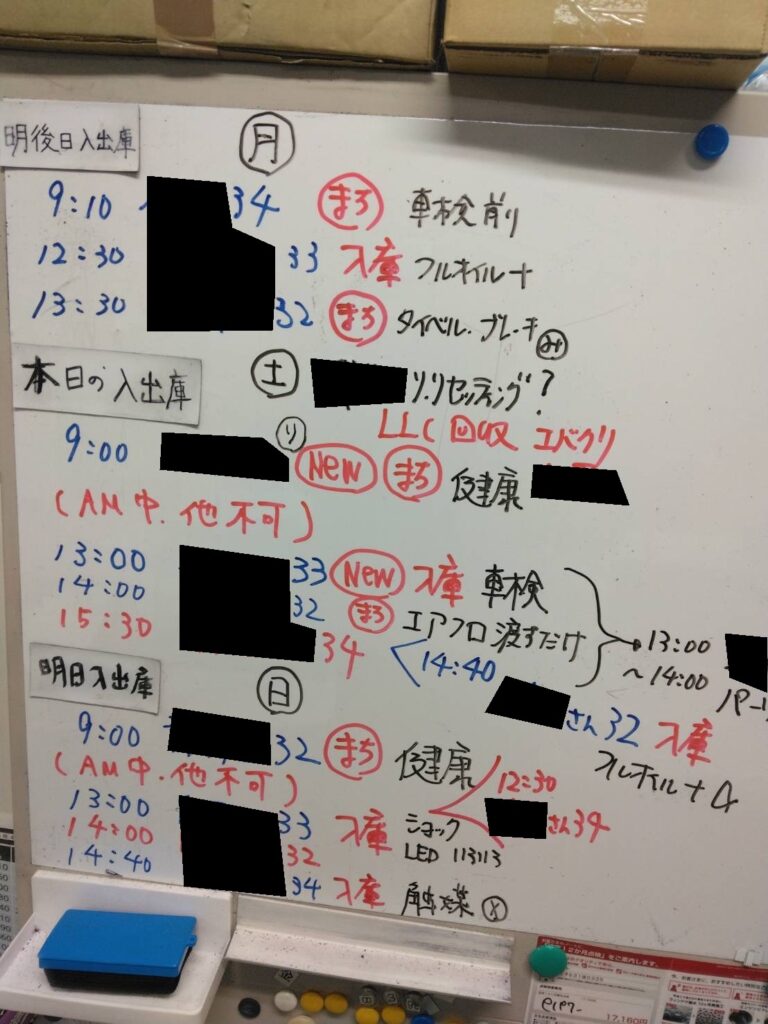 明後日入出庫 月
9:10 34 まち 車検前り
12:30 33 入庫 フルオイル+
13:30 32 まち タイベル.ブレーキ み
本日の入出庫 土 リ.リセッティング?
LLC回収 エバクリ
9:00 り New まち 健康
(AM中.他不可)
13:00 33 New 入庫 車検
14:00 32 まち エアフロ渡すだけ
15:30 34 14:40
13:00
~14:00
さん32 入庫
フルオイル+4
明日入出庫 日
9:00 32 まち 健康
(AM中.他不可)
12:30
さん34
13:00 33 入庫 ショック
14:00 32 LED
14:40 34 入庫 触媒
17,160円